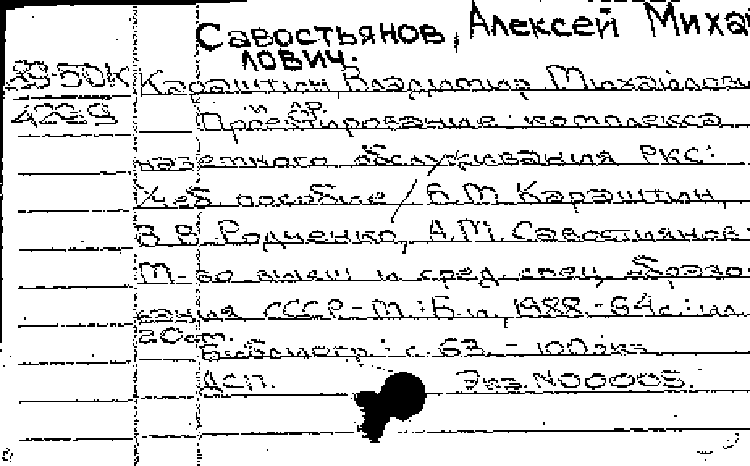 Савостьянов, Алексей Михай
лович.
39-50К Караштин Владимир Михайлови
4229 и др.
Проектирование комплекса
наземного обслуживания РКС:
Учеб пособие / В.М. Караштин,
В.В. Родченко, А.М. Савостиянов:
М-во высш и сред. спец. образо
вания СССР-М.: Б.и., 1988.-64с.: ил.
20см.
Библиогр.: с. 63. - 100экз.
ДСП. Экз.N00005.